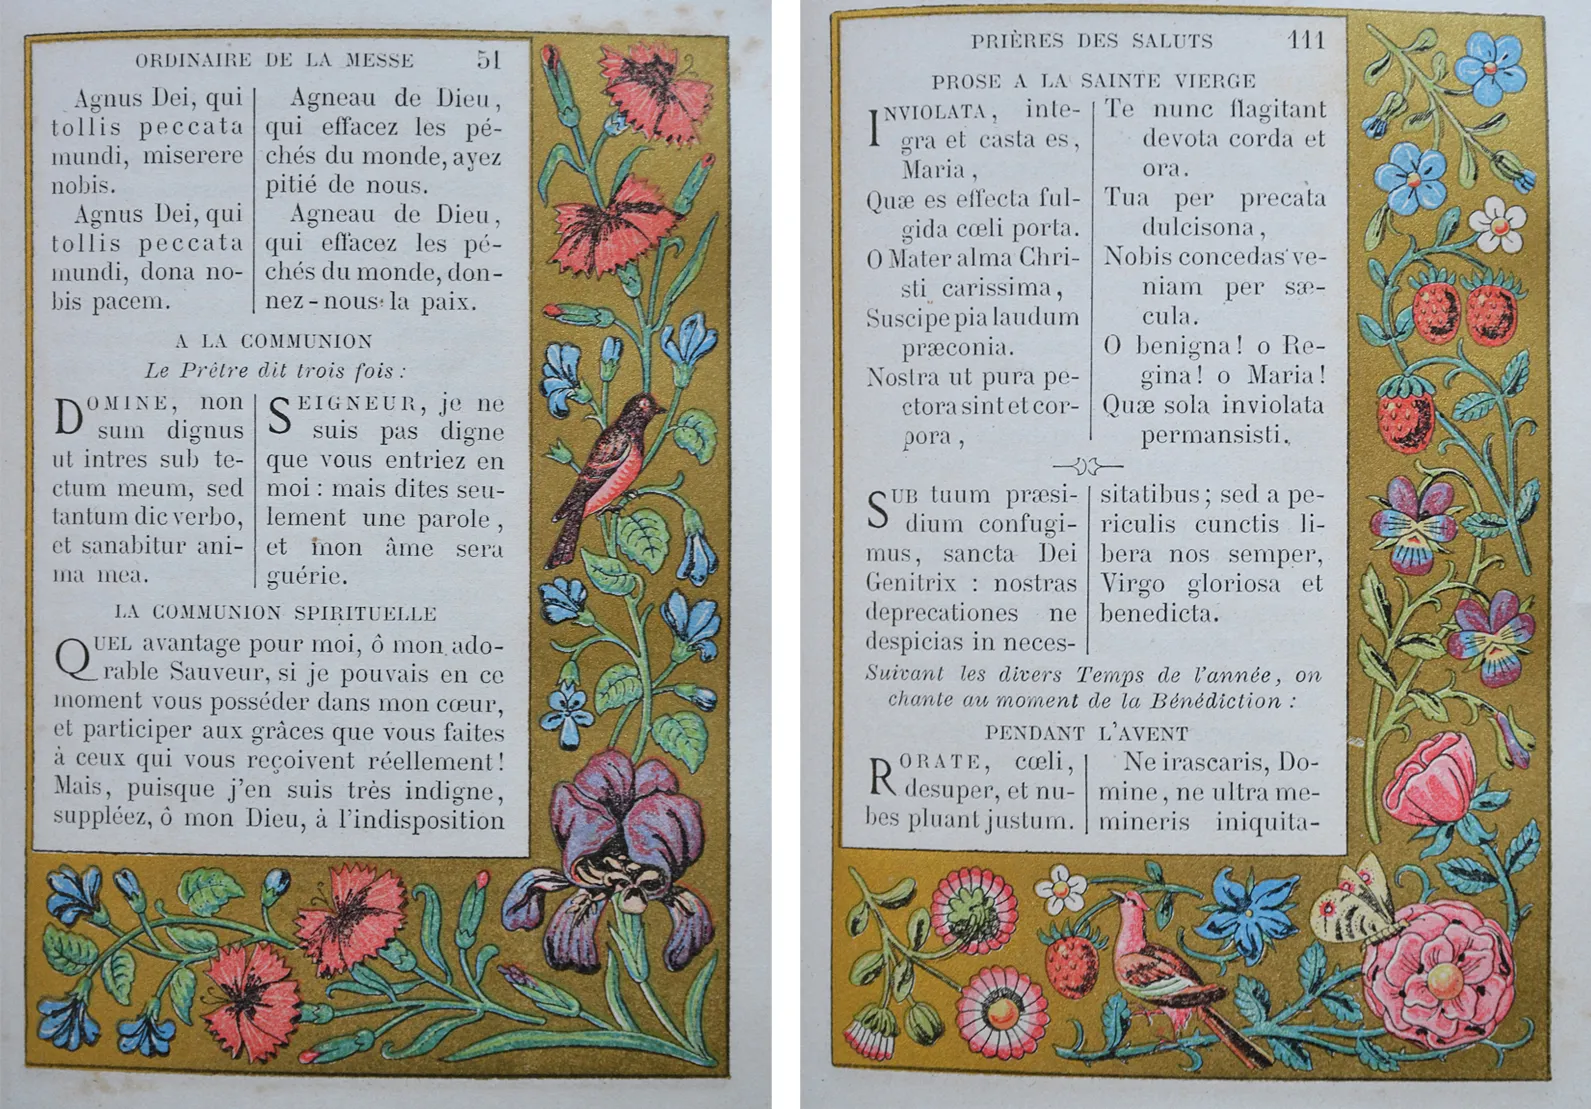 ORDINAIRE DE LA MESSE 51
Agnus Dei, qui
tollis peccata
mundi, miserere
nobis.
Agnus Dei, qui
tollis peccata
mundi, dona no-
bis pacem.
Agneau de Dieu,
qui effacez les pé-
chés du monde, ayez
pitié de nous.
Agneau de Dieu,
qui effacez les pé-
chés du monde, don-
nez-nous la paix.
A LA COMMUNION
Le Prêtre dit trois fois :
DOMINE, non
sum dignus
ut intres sub te-
ctum meum, sed
tantum dic verbo,
et sanabitur ani-
ma mea.
SEIGNEUR, je ne
suis pas digne
que vous entriez en
moi : mais dites seu-
lement une parole,
et mon âme sera
guérie.
LA COMMUNION SPIRITUELLE
QUEL avantage pour moi, ô mon ado-
rable Sauveur, si je pouvais en ce
moment vous posséder dans mon cœur,
et participer aux grâces que vous faites
à ceux qui vous reçoivent réellement!
Mais, puisque j'en suis très indigne,
suppléez, ô mon Dieu, à l'indisposition
PRIÈRES DES SALUTS 111
PROSE A LA SAINTE VIERGE
INVIOLATA, inte-
gra et casta es,
Maria,
Quæ es effecta ful-
gida cœli porta.
O Mater alma Chri-
sti carissima,
Suscipe pia laudum
præconia.
Nostra ut pura pe-
ctora sint et cor-
pora,
Te nunc flagitant
devota corda et
ora.
Tua per precata
dulcisona,
Nobis concedas ve-
niam per sæ-
cula.
O benigna! o Re-
gina! o Maria!
Quæ sola inviolata
permansisti.
SUB tuum præsi-
dium confugi-
mus, sancta Dei
Genitrix : nostras
deprecationes ne
despicias in neces-
sitatibus; sed a pe-
riculis cunctis li-
bera nos semper,
Virgo gloriosa et
benedicta.
Suivant les divers Temps de l'année, on
chante au moment de la Bénédiction :
PENDANT L'AVENT
RORATE, cœli,
desuper, et nu-
bes pluant justum.
Ne irascaris, Do-
mine, ne ultra me-
mineris iniquita-